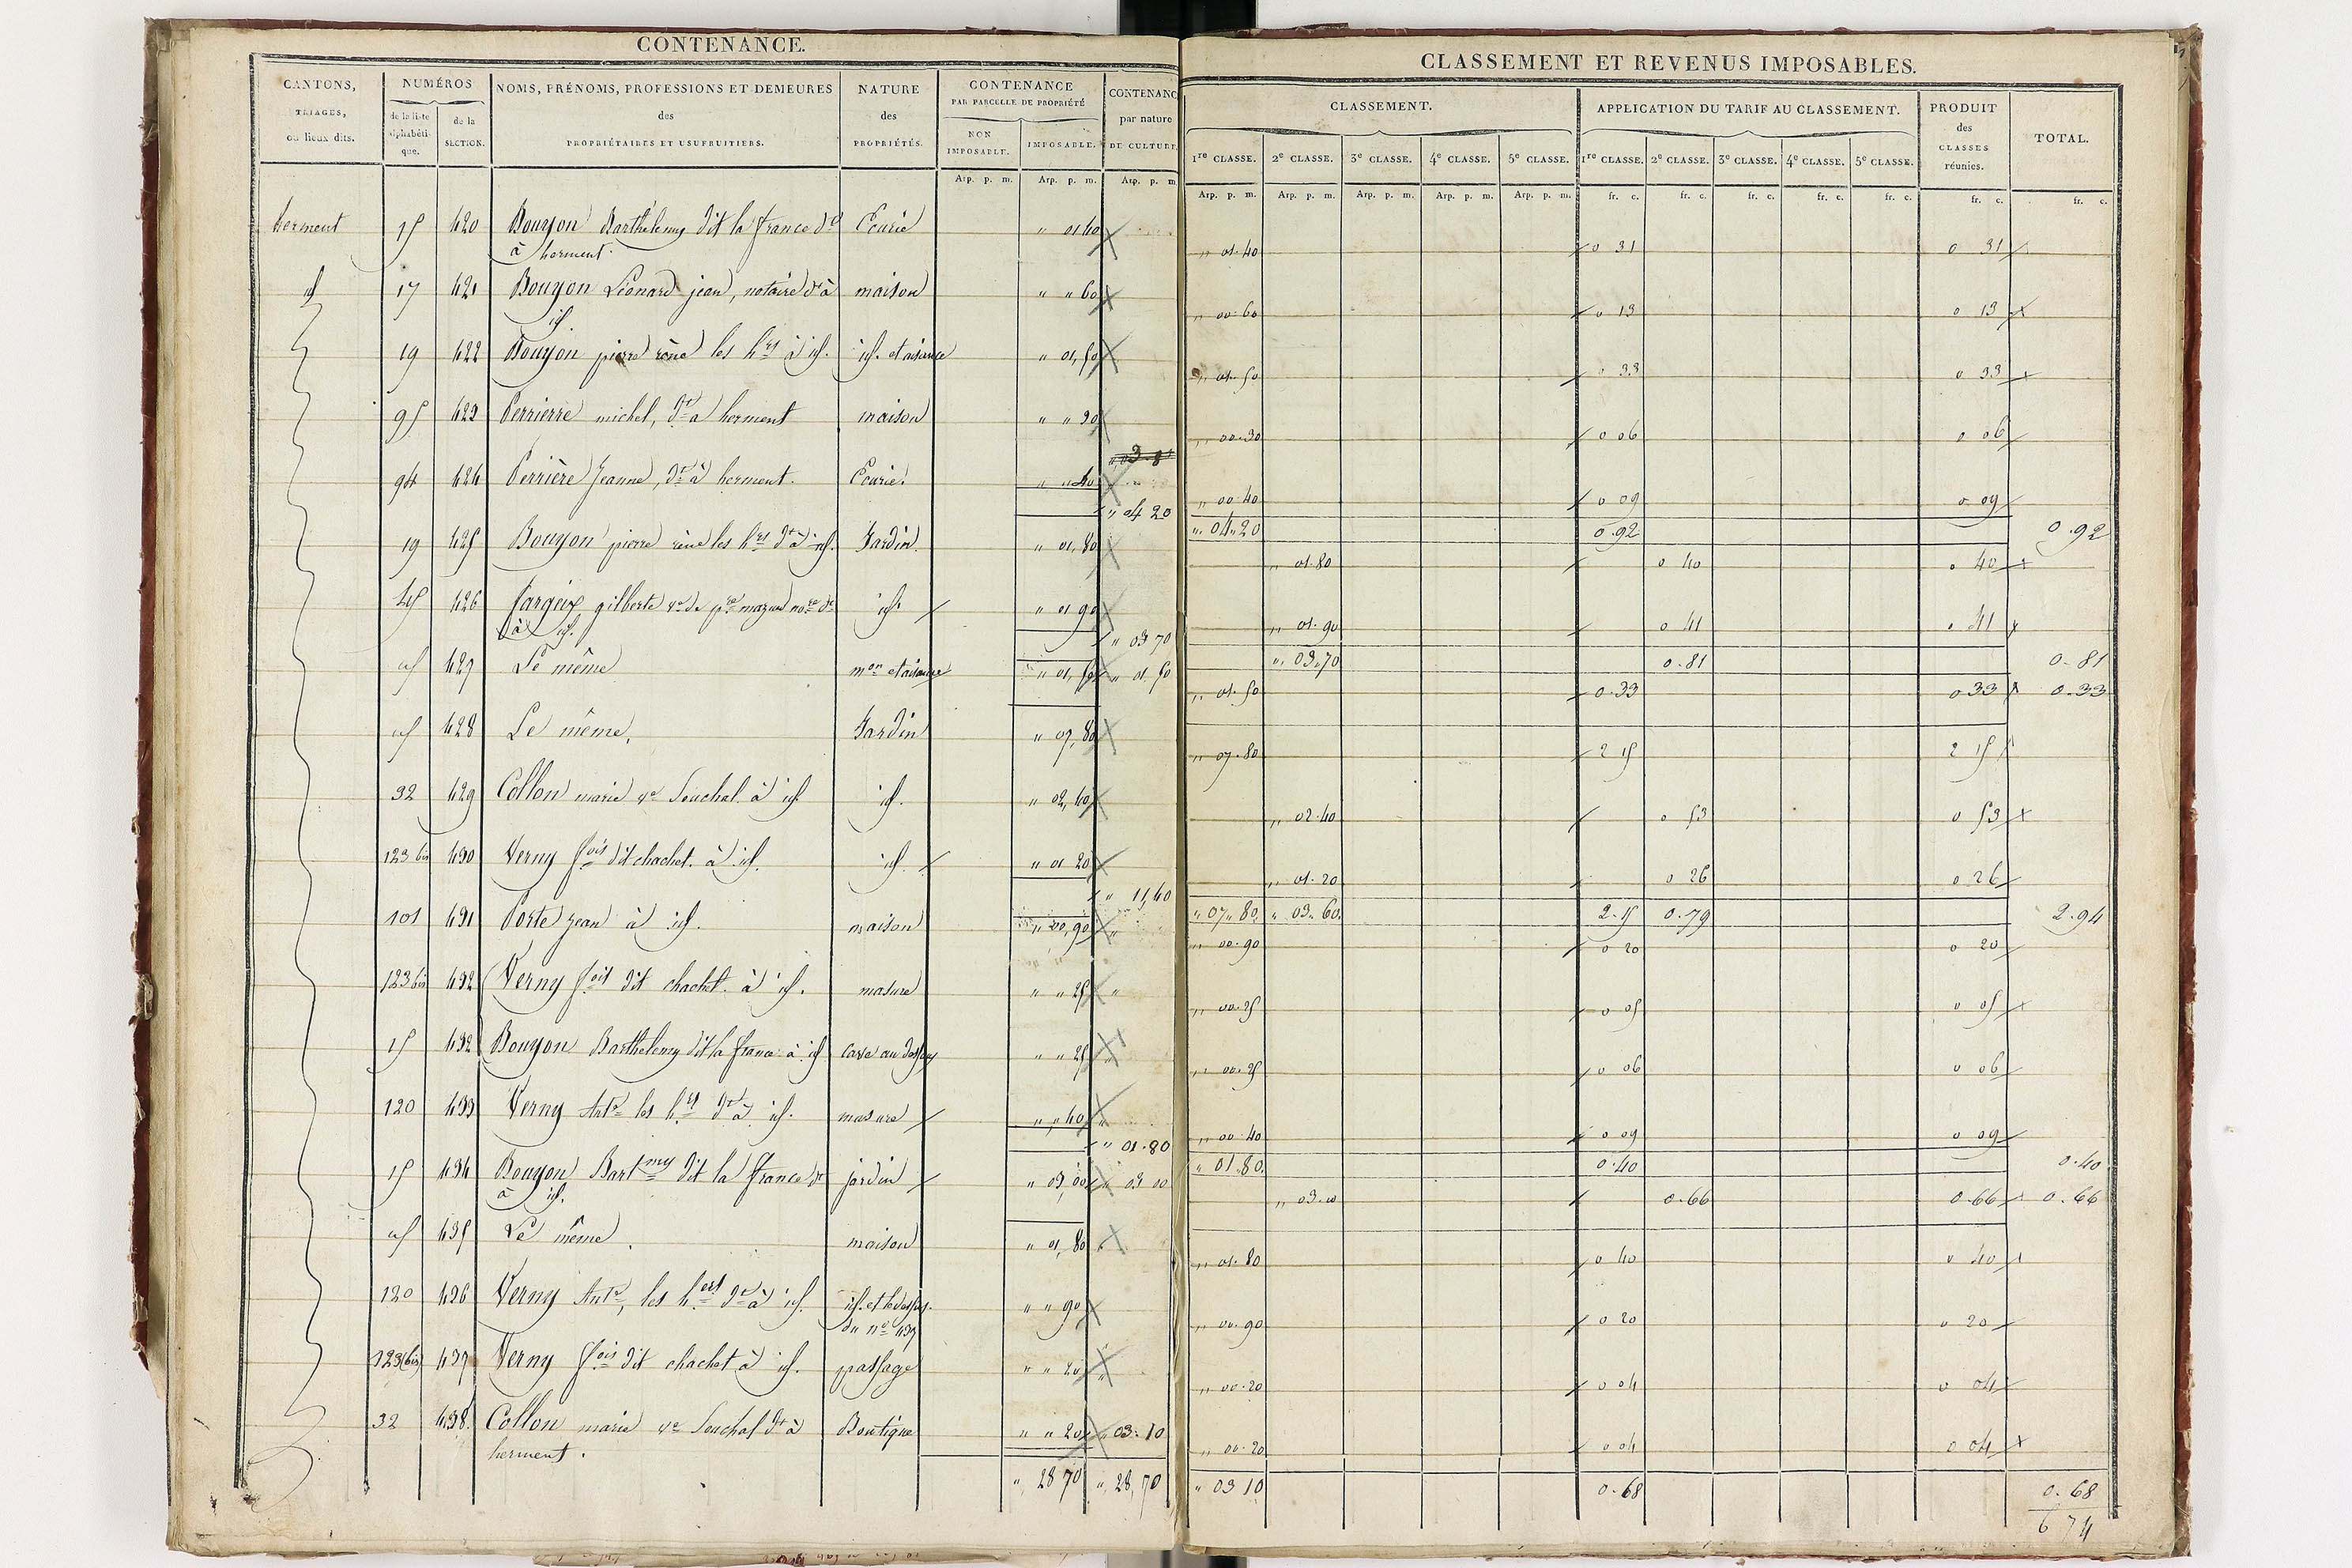 CONTENANCE.
CANTONS, TRIAGES, ou lieux dits.
NUMÉROS
de la liste alphabétique.
de la SECTION.
NOMS, PRÉNOMS, PROFESSIONS ET DEMEURES
des
PROPRIÉTAIRES ET USUFRUITIERS.
NATURE des PROPRIÉTÉS.
CONTENANCE
PAR PARCELLE DE PROPRIÉTÉ
NON IMPOSABLE.
IMPOSABLE.
CONTENANC par nature DE CULTURE
Arp. p. m. Arp. p. m. Arp. p. m.
herment 15 420 Bouyon Barthélemy dit la france dt Ecurie " 01 40
à herment.
id 17 421 Bouyon Léonard jean, notaire dt à maison " " 60
id.
19 422 Bouyon pierre rène les hrs à id. id. et aisance " 01, 50
95 423 Perrierre michel, dt à herment maison " " 30
94 424 Perrière Jeanne, dt à herment. Ecurie. " " 40
" 04 20
19 425 Bouyon pierre rène les hrs dt à id. Jardin. " 01, 80
45 426 fargeix gilberte ve de pre mazuel nore dt id. " 01 90
à id. " 03 70
id 427 Le même mon et aisance " 01, 50 " 01. 50
id 428 Le même. Jardin " 07, 80
32 429 Collon marie ve Souchal à id id. " 02, 40
123 bis 430 Verny fois dit chachet. à id. id. " 01 20
" 11, 60
101 431 Porte jean à id. maison " 00, 90
123 bis 432 Verny fois dit chachet. à id. masure " " 25
15 432 Bouyon Barthélemy dit la france à id cave au dessous " " 25
120 433 Verny Ante les hrs dt à id. masure " " 40
" 01. 80
15 434 Bouyon Bartmy dit la france dt jardin " 03, 00 " 03 00
à id.
id 435 Le même. maison " 01, 80
120 436 Verny Ante, les hers dt à id. id. et le dessus " " 90
du no 437
123 (bis) 437 Verny fois dit chachet à id. passage " " 20
32 438 Collon marie ve Souchal dt à Boutique " " 20 " 03. 10
herment.
" 28 70 " 28, 70
CLASSEMENT ET REVENUS IMPOSABLES.
CLASSEMENT.
APPLICATION DU TARIF AU CLASSEMENT.
PRODUIT des CLASSES réunies.
TOTAL.
1re CLASSE. 2e CLASSE. 3e CLASSE. 4e CLASSE. 5e CLASSE. 1re CLASSE. 2e CLASSE. 3e CLASSE. 4e CLASSE. 5e CLASSE.
Arp. p. m. Arp. p. m. Arp. p. m. Arp. p. m. Arp. p. m. fr. c. fr. c. fr. c. fr. c. fr. c. fr. c. fr. c.
" 01. 40 0 31 0 31
" 00. 60 0 13 0 13
" 01. 50 0 33 0 33
" 00. 30 0 06 0 06
" 00. 40 0 09 0 09
" 04 20 0. 92 0. 92
" 01. 80 0 40 0 40
" 01. 90 0 41 0 41
" 03. 70 0. 81 0. 81
" 01. 50 0. 33 0 33 0. 33
" 07. 80 2 15 2 15
" 02. 40 0 53 0 53
" 01. 20 0 26 0 26
" 07. 80 " 03. 60 2. 15 0. 79 2. 94
" 00. 90 0 20 0 20
" 00. 25 0 05 0 05
" 00. 25 0 06 0 06
" 00. 40 0 09 0 09
" 01. 80 0. 40 0. 40
" 03. 00 0. 66 0. 66 0. 66
" 01. 80 0 40 0 40
" 00. 90 0 20 0 20
" 00. 20 0 04 0 04
" 00. 20 0 04 0 04
" 03 10 0. 68 0. 68
6 74